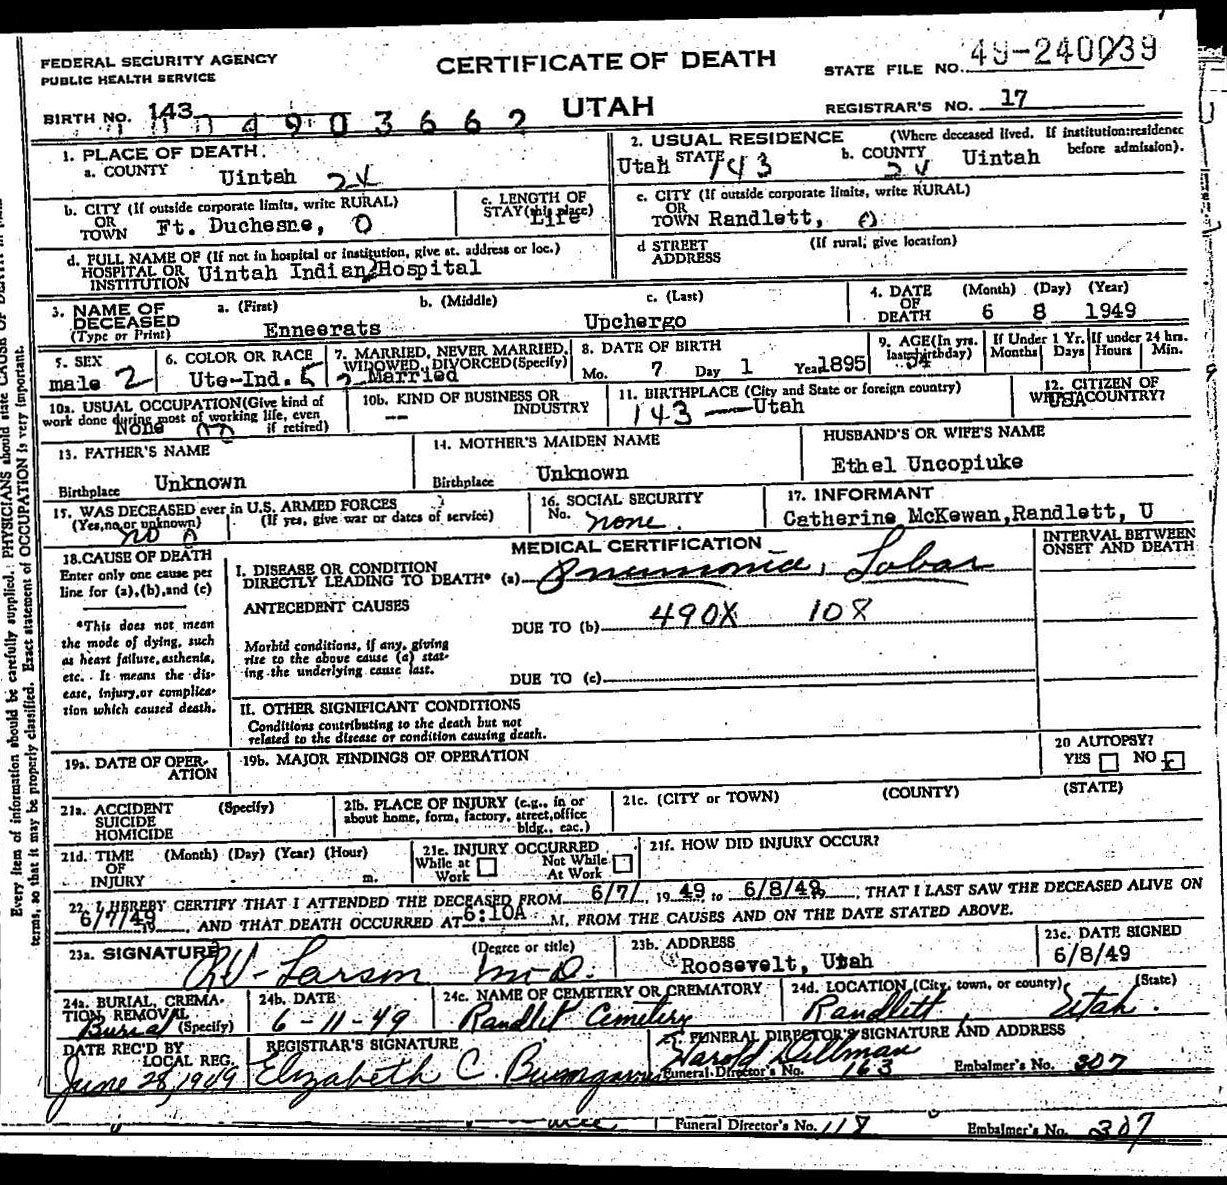 FEDERAL SECURITY AGENCY
PUBLIC HEALTH SERVICE
CERTIFICATE OF DEATH
STATE FILE NO. 49-240039
BIRTH NO. 143 4903662
UTAH
REGISTRAR'S NO. 17
1. PLACE OF DEATH.
a. COUNTY Uintah 24
2. USUAL RESIDENCE (Where deceased lived. If institution:residence before admission).
Utah STATE 143 b. COUNTY 24 Uintah
b. CITY (If outside corporate limits, write RURAL)
OR
TOWN Ft. Duchesne, 0
c. LENGTH OF
STAY (this place) Life
c. CITY (If outside corporate limits, write RURAL)
OR
TOWN Randlett, 0
d. FULL NAME OF (If not in hospital or institution, give st. address or loc.)
HOSPITAL OR
INSTITUTION Uintah Indian Hospital
d STREET (If rural; give location)
ADDRESS
3. NAME OF
DECEASED
(Type or Print)
a. (First) b. (Middle) c. (Last)
Enneerats Upchergo
4. DATE
OF
DEATH
(Month) (Day) (Year)
6 8 1949
5. SEX
male 2
6. COLOR OR RACE
Ute-Ind. 5
7. MARRIED, NEVER MARRIED,
WIDOWED, DIVORCED(Specify)
2 Married
8. DATE OF BIRTH
Mo. 7 Day 1 Year 1895
9. AGE(In yrs.
last birthday)
54
If Under 1 Yr.
Months Days
If under 24 hrs.
Hours Min.
10a. USUAL OCCUPATION(Give kind of
work done during most of working life, even
if retired)
None
10b. KIND OF BUSINESS OR
INDUSTRY
--
11. BIRTHPLACE (City and State or foreign country)
143 — Utah
12. CITIZEN OF
WHAT COUNTRY?
USA
13. FATHER'S NAME
Birthplace Unknown
14. MOTHER'S MAIDEN NAME
Birthplace Unknown
HUSBAND'S OR WIFE'S NAME
Ethel Uncopiuke
15. WAS DECEASED ever in U.S. ARMED FORCES
(Yes,no,or unknown) (If yes, give war or dates of service)
no 0
16. SOCIAL SECURITY
No. none.
17. INFORMANT
Catherine McKewan,Randlett, U
18.CAUSE OF DEATH
Enter only one cause per
line for (a),(b),and (c)
*This does not mean
the mode of dying, such
as heart failure,asthenia,
etc. It means the dis-
ease, injury,or complica-
tion which caused death.
MEDICAL CERTIFICATION
INTERVAL BETWEEN
ONSET AND DEATH
I. DISEASE OR CONDITION
DIRECTLY LEADING TO DEATH* (a) Pneumonia, Lobar
ANTECEDENT CAUSES
DUE TO (b) 490X 108
Morbid conditions, if any, giving
rise to the above cause (a) stat-
ing the underlying cause last.
DUE TO (c)
II. OTHER SIGNIFICANT CONDITIONS
Conditions contributing to the death but not
related to the disease or condition causing death.
19a. DATE OF OPER-
ATION
19b. MAJOR FINDINGS OF OPERATION
20 AUTOPSY?
YES NO
21a. ACCIDENT (Specify)
SUICIDE
HOMICIDE
21b. PLACE OF INJURY (e.g., in or
about home, form, factory, street,office
bldg., eac.)
21c. (CITY or TOWN) (COUNTY) (STATE)
21d. TIME (Month) (Day) (Year) (Hour)
OF
INJURY m.
21e. INJURY OCCURRED
While at Work Not While At Work
21f. HOW DID INJURY OCCUR?
22. I HEREBY CERTIFY THAT I ATTENDED THE DECEASED FROM 6/7/, 19 49 to 6/8/49, THAT I LAST SAW THE DECEASED ALIVE ON
6/7/49, AND THAT DEATH OCCURRED AT 6:10A M, FROM THE CAUSES AND ON THE DATE STATED ABOVE.
23a. SIGNATURE (Degree or title)
Larson M.D.
23b. ADDRESS
Roosevelt, Utah
23c. DATE SIGNED
6/8/49
24a. BURIAL, CREMA-
TION REMOVAL
(Specify)
Burial
24b. DATE
6-11-49
24c. NAME OF CEMETERY OR CREMATORY
Randlet Cemetery
24d. LOCATION (City, town, or county) (State)
Randlett, Utah.
DATE REC'D BY
LOCAL REG.
June 28, 1949
REGISTRAR'S SIGNATURE
Elizabeth C.
FUNERAL DIRECTOR'S SIGNATURE AND ADDRESS
Harold Dillman
Funeral Director's No. 163 Embalmer's No. 307
Funeral Director's No. 118 Embalmer's No. 307
Every item of information should be carefully supplied. PHYSICIANS should state CAUSE OF DEATH in plain
terms, so that it may be properly classified. Exact statement of OCCUPATION is very important.